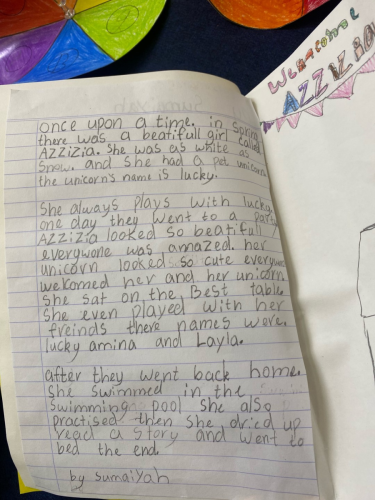 Welcome
AZZIZ
once upon a time. in Spring
there was a beatifull girl called
AZZIZIA. she was as white as
snow. and she had a pet unicorn
the unicorn's name is lucky.
She always plays with lucky
one day they went to a party
AZZIZIA looked so beatifull
everywone was amazed. her
unicorn looked so cute everywone
welcomned her and her unicorn
she sat on the Best table
She even played with her
freinds there names were.
lucky amina and Layla.
after they went back home.
She swimmed in the
swimming pool she also
practised then she dried up
read a story and went to
bed the end.
by sumaiYah